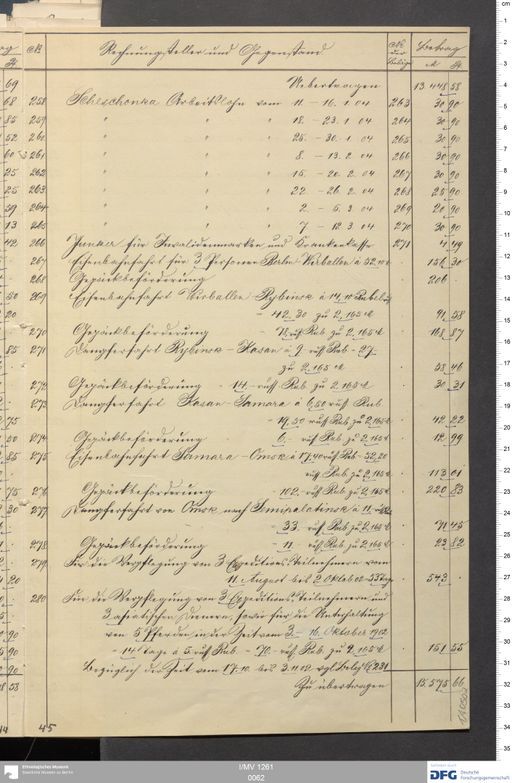 № Rechnungsteller und Gegenstand № der Beläge Betrag
M ₰
Uebertragen 13 448 58
258 Scheschonka Arbeitslohn vom 11. - 16. 1. 04 263 30 90
259 " " " 18. - 23. 1. 04 264 30 90
260 " " " 25. - 30. 1. 04 265 30 90
261 " " " 8. - 13. 2. 04 266 30 90
262 " " " 15. - 20. 2. 04 267 30 90
263 " " " 22. - 26. 2. 04 268 25 90
264 " " " 2. - 5. 3. 04 269 20 90
265 " " " 7. - 12. 3. 04 270 30 90
266 für Invalidenmarken und Krankenkasse 271 4 49
267 Eisenbahnfahrt für 3 Personen Berlin Wirballen à 52.10 . 156 30
268 Gepäckbeförderung . 206 .
269 Eisenbahnfahrt Wirballen Rybinsk à 14,10 Rubel
= 42.30 zu 2,165 M . 91 58
270 Gepäckbeförderung russ. Rub. zu 2,165 M . 118 87
271 Dampferfahrt Rybinsk - Kasan à 9 russ. Rub. = 27.
zu 2,165 M . 58 46
272 Gepäckbeförderung = 14. russ. Rub. zu 2,165 M . 30 31
273 Dampferfahrt Kasan - Samara à 6,50 russ. Rub.
= 19,50 russ. Rub. zu 2,165 M . 42 22
274 Gepäckbeförderung 6. russ. Rub. zu 2,165 M . 12 99
275 Eisenbahnfahrt Samara - Omsk à 17.40 russ. Rub. = 52,20
russ. Rub. zu 2,165 M . 113 01
276 Gepäckbeförderung = 102. russ. Rub. zu 2,165 M . 220 83
277 Dampferfahrt von Omsk nach Semipalatinsk à 11. russ.
= 33. russ. Rub. zu 2,165 M . 71 45
278 Gepäckbeförderung = 11. russ. Rub. zu 2,165 M . 23 82
279 Für die Verpflegung von 3 Expeditionsteilnehmern vom
11. August bis 2. Oktober = 53 Tage . 543 .
280 Für die Verpflegung von 3 Expeditionsteilnehmern und
3 asiatischen Dienern, sowie für die Unterhaltung
von 5 Pferden in der Zeit vom 3. - 16. Oktober 1902
= 14 Tage à 5. russ. Rub. = 70. russ. Rub. zu 2,165 M . 151 55
Bezüglich der Zeit vom 17. 10. bis 3. 11. 02 vgl. Belag № 231
Zu übertragen 15 575 66
45
I/MV 1261
0062
Ethnologisches Museum
Staatliche Museen zu Berlin
DFG Deutsche
Forschungsgemeinschaft